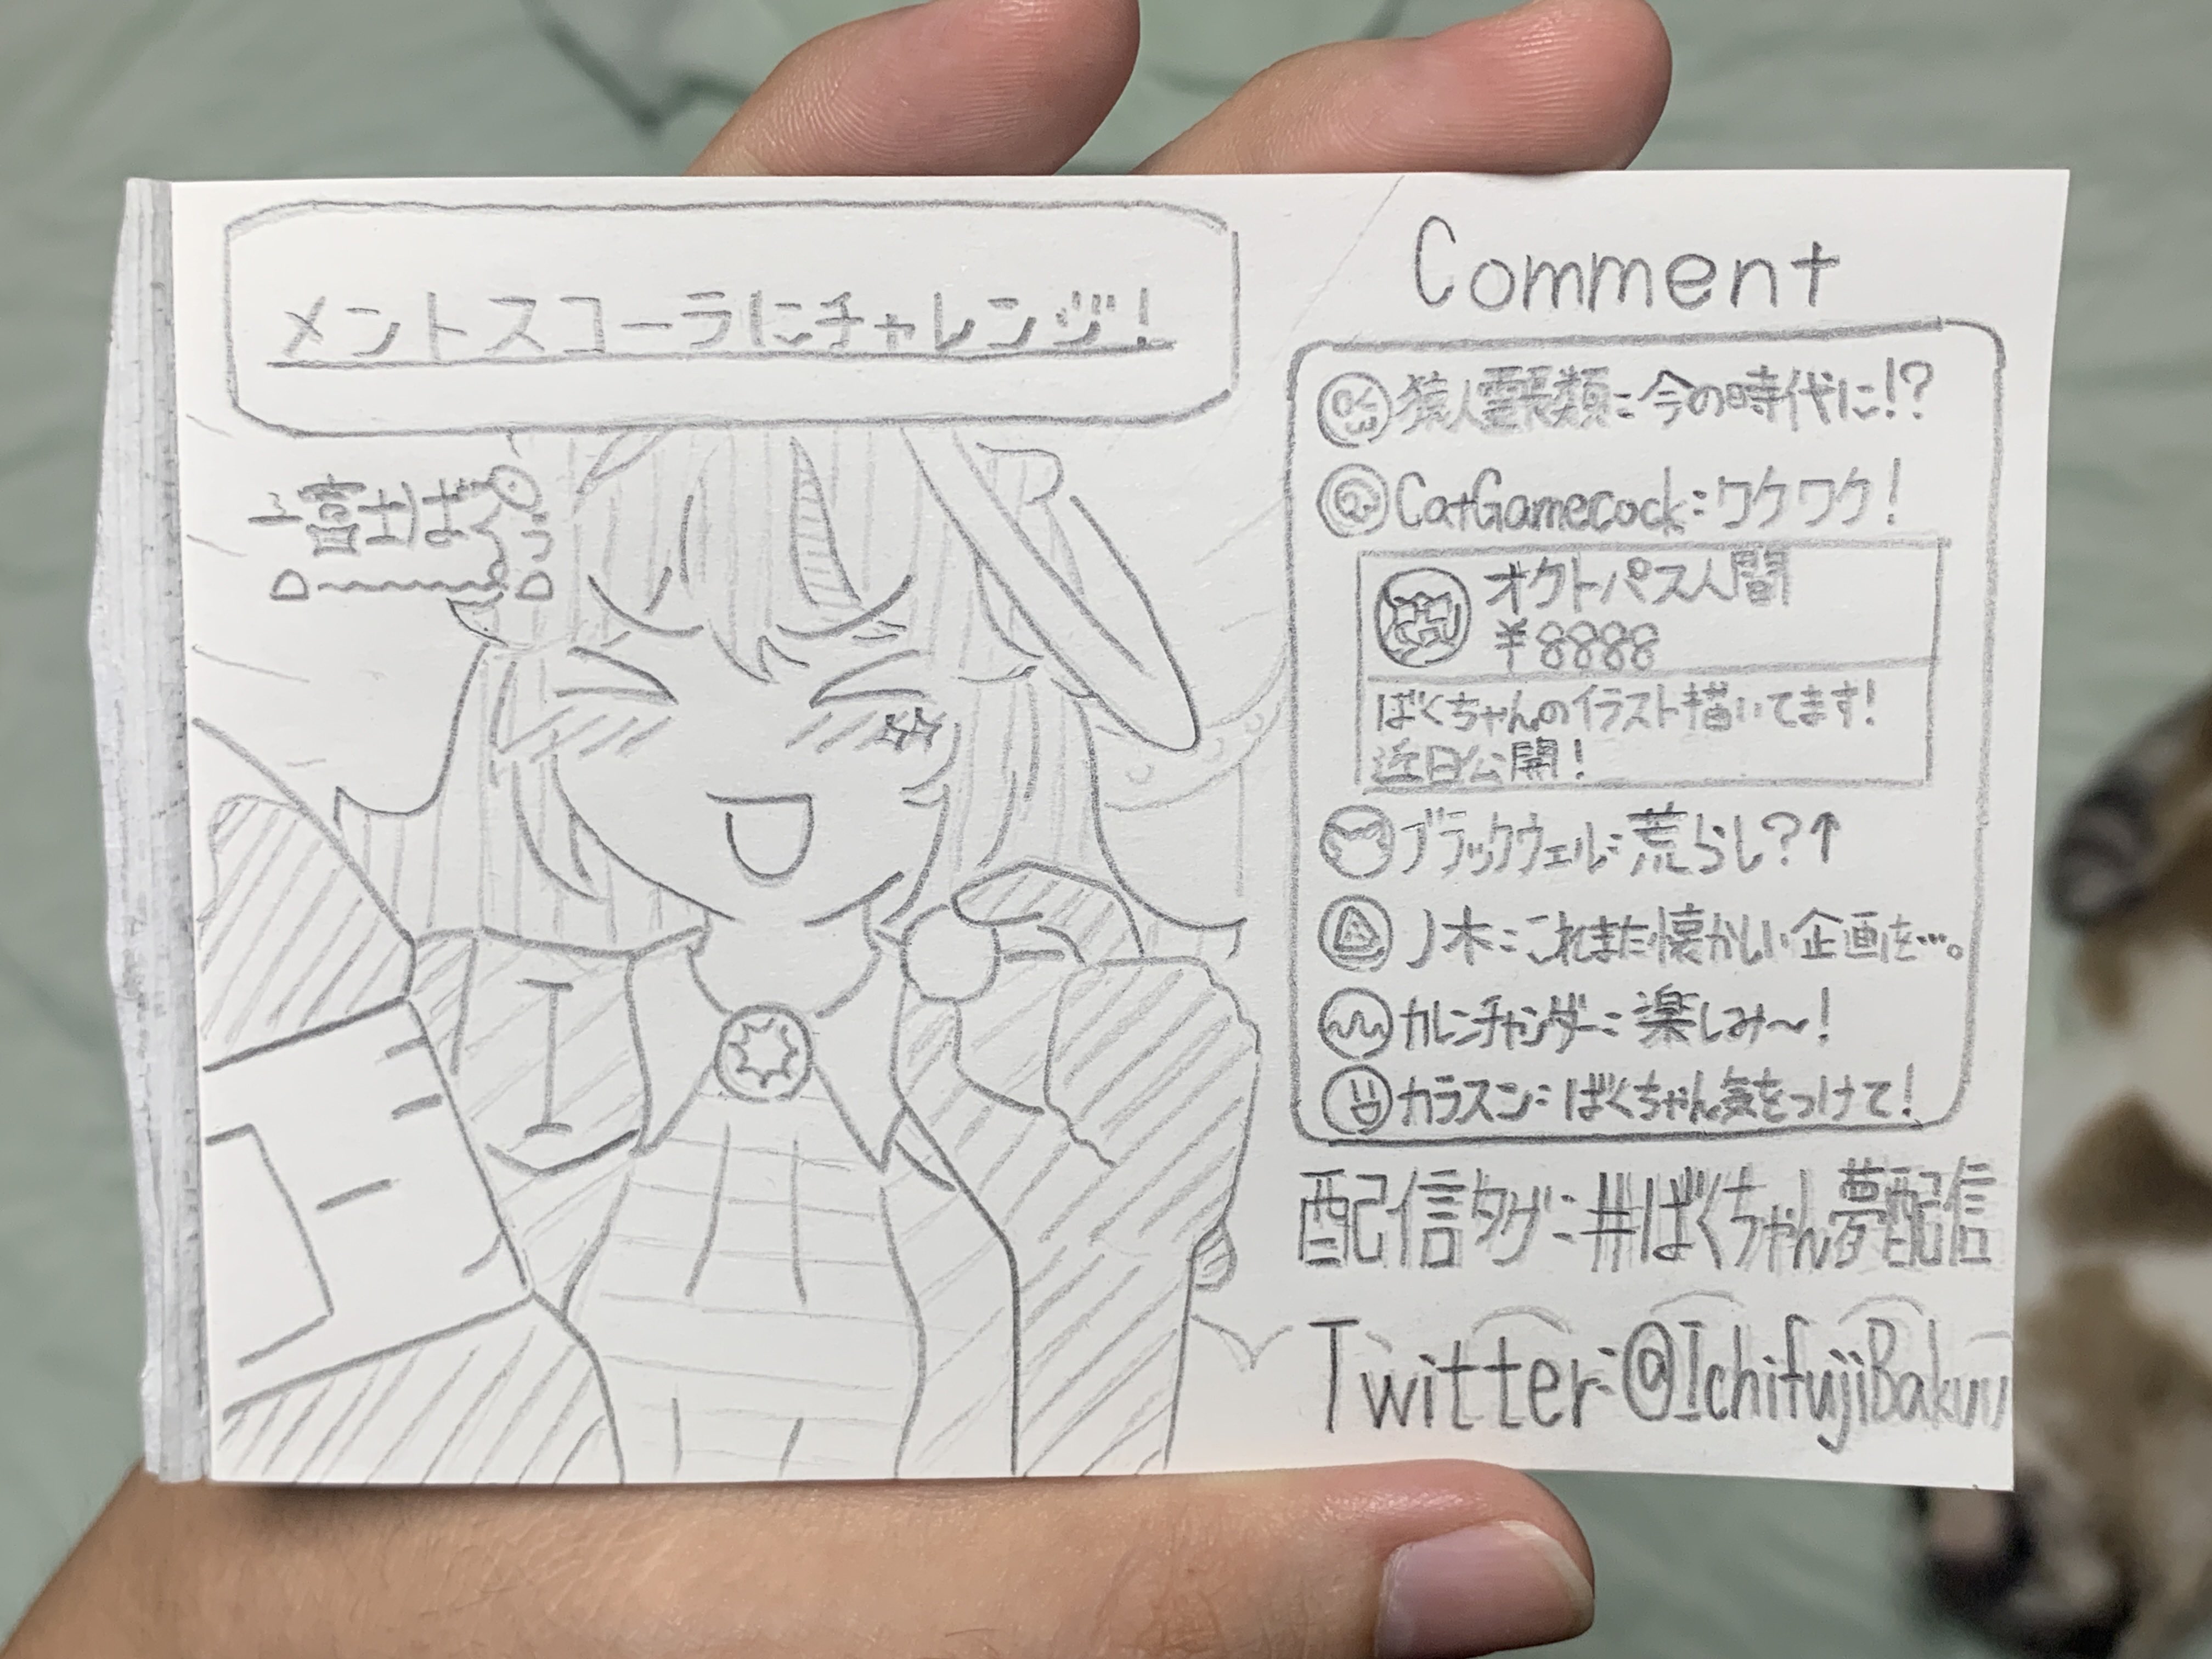 メントスコーラにチャレンジ!
一富士ばくう
Comment
猿人霊長類:今の時代に!?
CatGamecock:ワクワク!
オクトパス人間
¥8888
ばくちゃんのイラスト描いてます!
近日公開!
ブラックウェル:荒らし?↑
ノ木:これまた懐かしい企画を…。
カレンチャンダー:楽しみ〜!
カラスン:ばくちゃん気をつけて!
配信タグ:#ばくちゃん夢配信
Twitter:@IchifujiBakuu